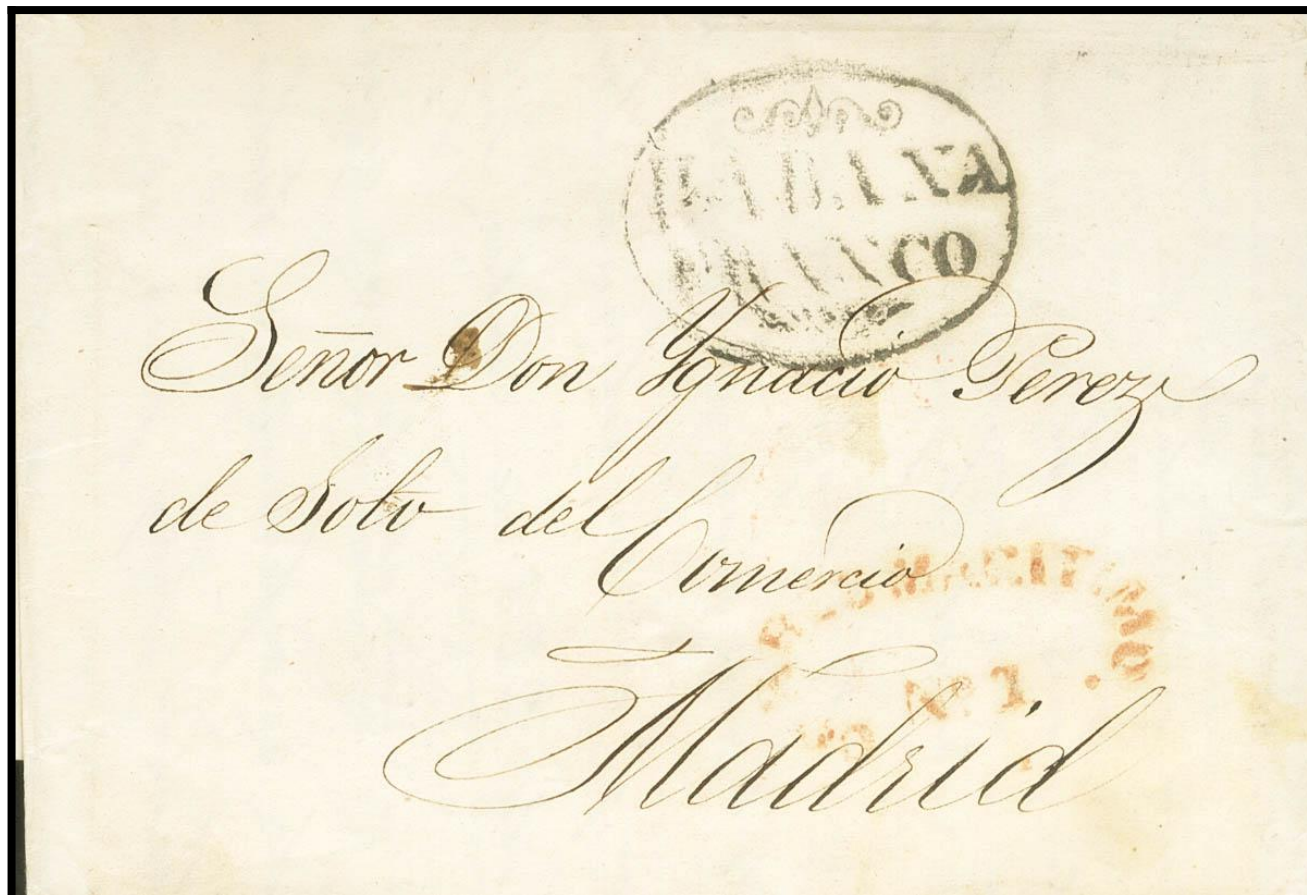 HABANA
FRANCO
Señor Don Ygnacio Perez
de Soto del
Comercio
Nº 1
Madrid